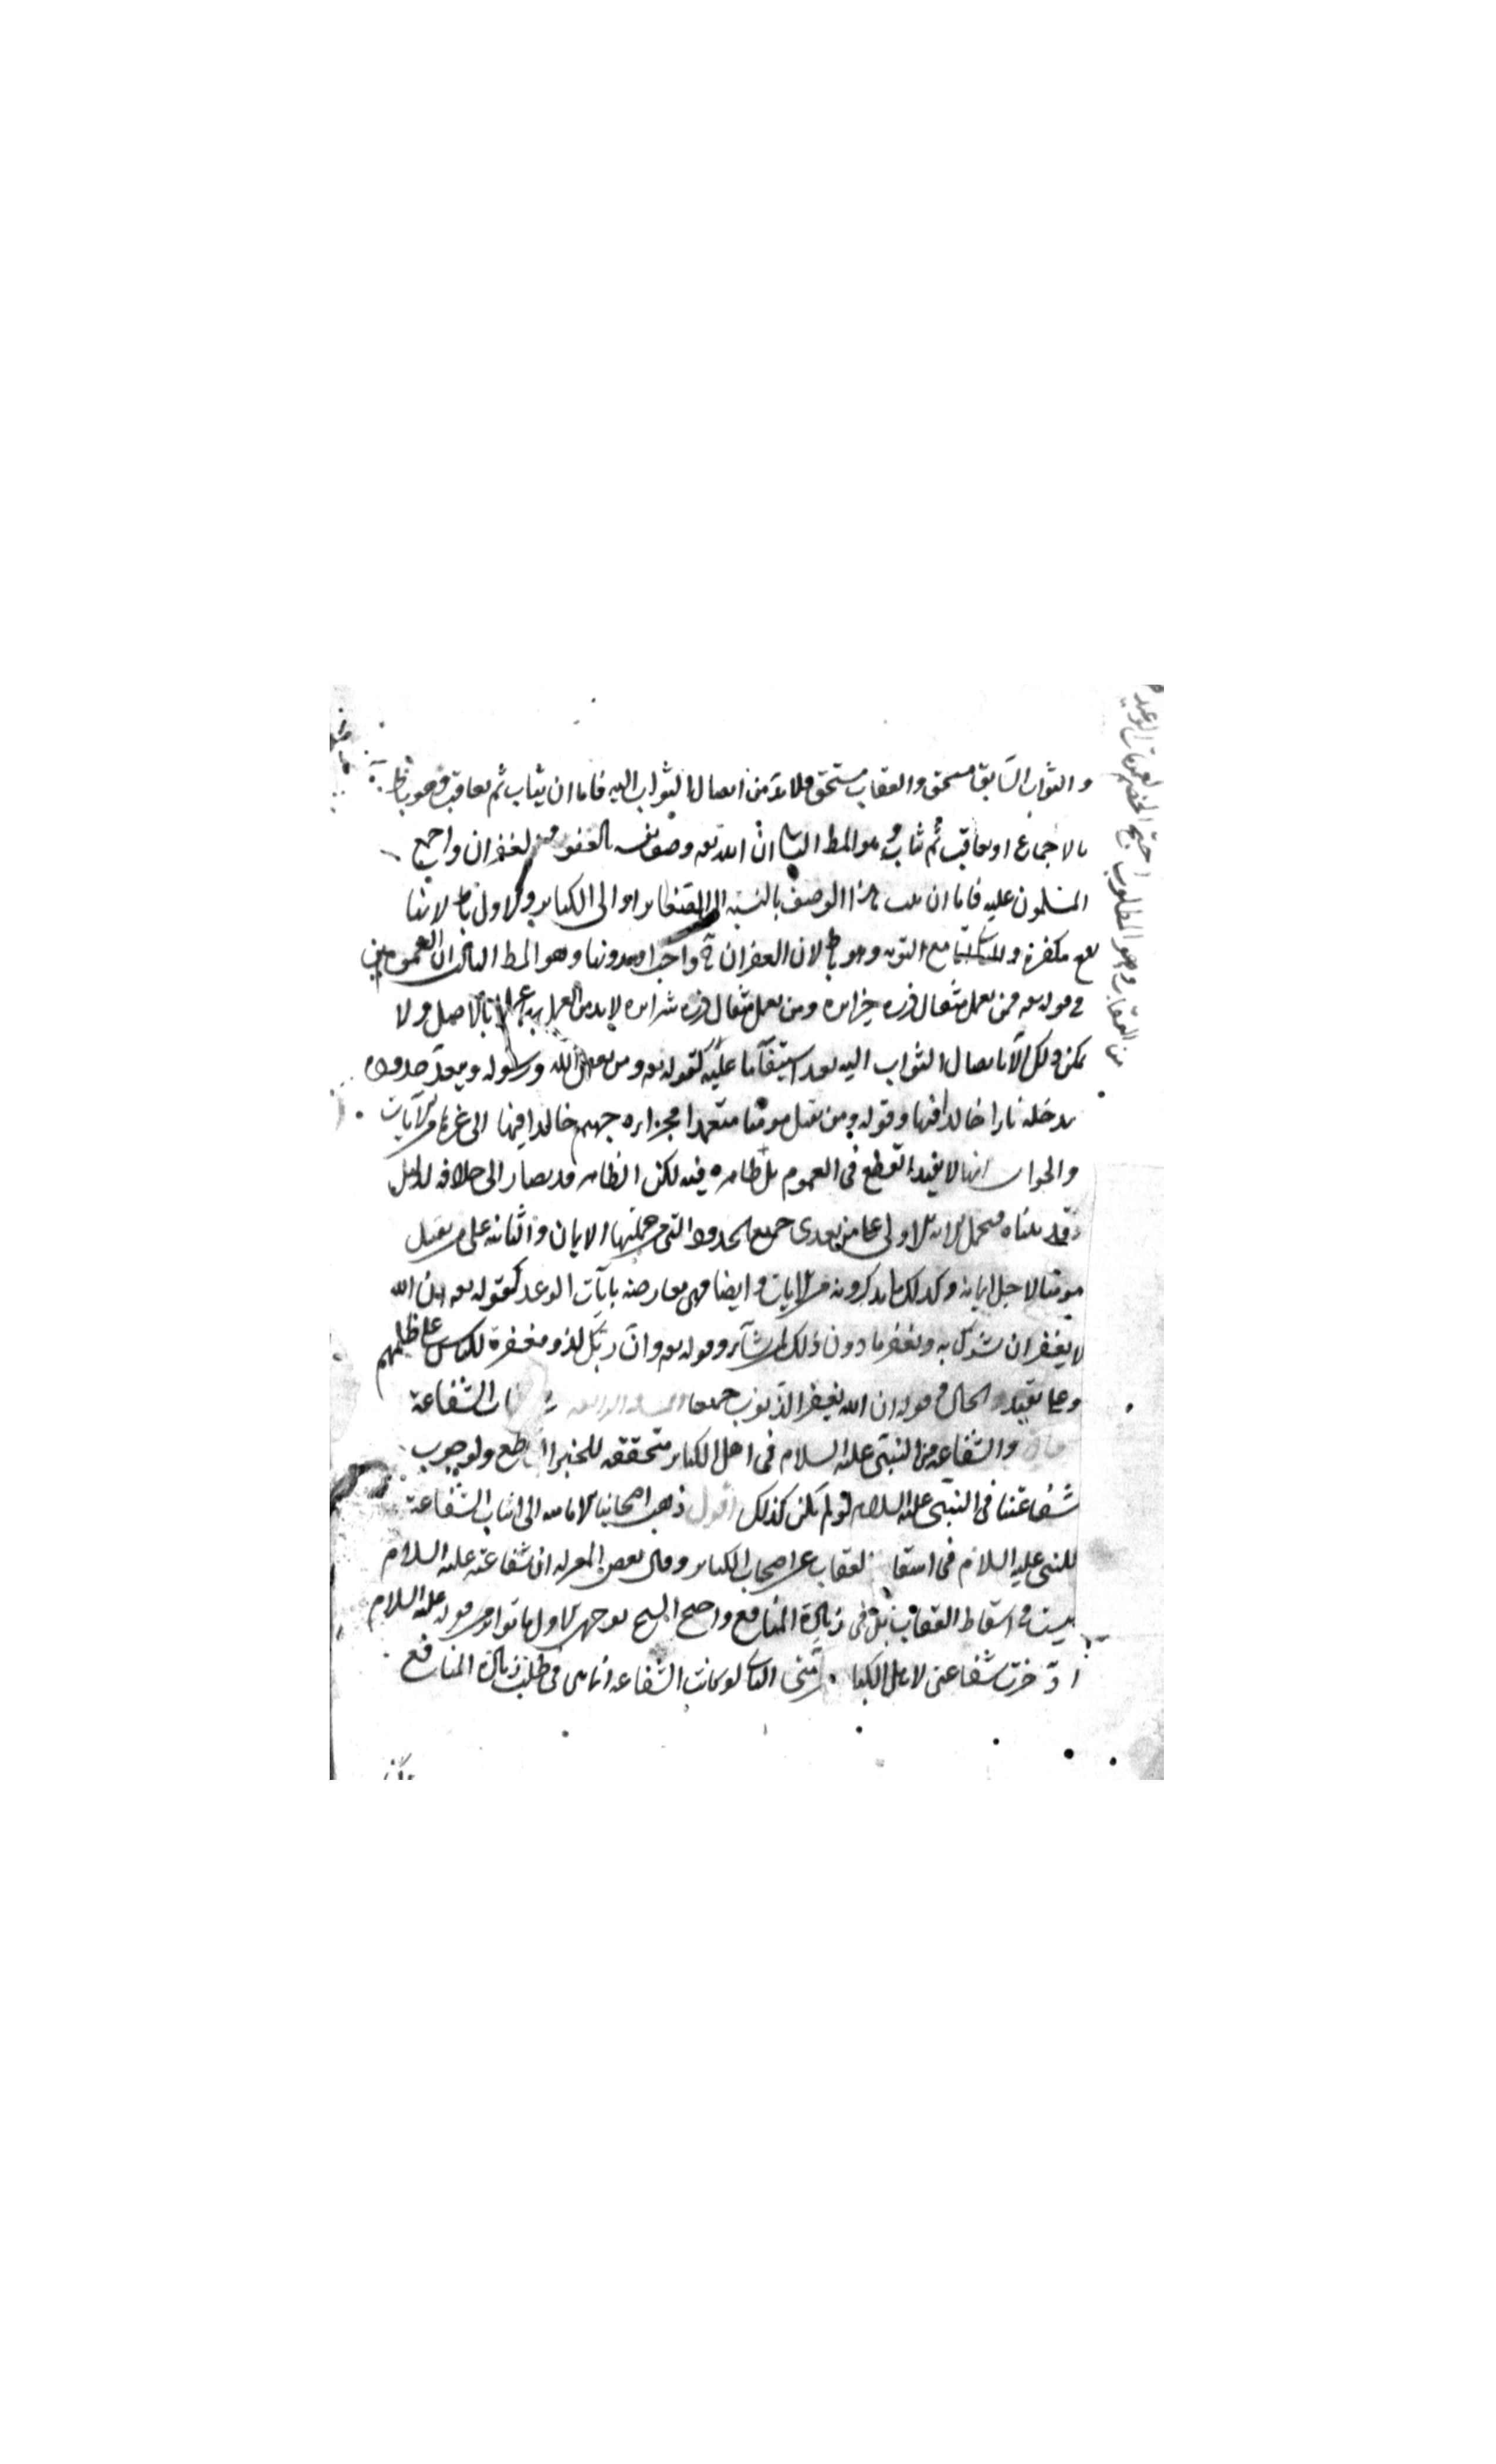 والثواب السابق مستحق والعقاب مستحق فلا بد من ايصال الثواب اليه فاما ان يثاب ثم يعاقب وهو باطل
بالاجماع او يعاقب ثم يثاب وهو المط الثانى ان الله تعه وصف نفسه بالعفو والغفران واجمع
المسلمون عليه فاما ان يثبت هذا الوصف بالنسبة الى الصغاير او الى الكباير والاول بط لانها
تقع مكفرة والثانى اما مع التوبه وهو بط لان الغفران ح واجب او بدونها وهو المط الثالث ان العموم
فى قوله تعه فمن يعمل مثقال ذره خيرا يره ومن يعمل مثقال ذره شرا يره لا بد من العمل به بالاصل ولا
يمكن ذلك الا بايصال الثواب اليه بعد كقوله تعه ومن يعص الله ورسوله ويتعد حدوده
يدخله نارا خالدا فيها وقوله ومن يقتل مومنا متعمدا فجزاوه جهنم خالدا فيها الى غيرها من الايات
والجواب انها لا يفيد القطع فى العموم بل ظاهره فيه لكن الظاهر قد يصار الى خلافه لدليل
وقد بيناه فتحمل الايه الاولى على من يتعدى جميع الحدود التى من جملتها الايمان والثانيه على من يقتل
مومنا لاجل ايمانه وكذلك ما يذكرونه من الايات وايضا فهى معارضه بآيات الوعد كقوله تعه ان الله
لا يغفر ان يشرك به ويغفر ما دون ذلك لمن يشاء وقوله تعه وان ربك لذو مغفرة للناس على ظلمهم
وعلى تفيد الحال وقوله ان الله يغفر الذنوب جميعا الشفاعة
والشفاعه من النبى عليه السلام فى اهل الكباير متحققه للخبر القاطع ولوجوب
شفاعتنا فى النبى عليه السلام لو لم يكن كذلك اقول ذهب اصحابنا الاماميه الى اثبات الشفاعة
للنبى عليه السلام فى اسقاط العقاب عن اصحاب الكباير وقال بعض المعتزله ان شفاعته عليه السلام
ليست فى اسقاط العقاب بل فى زيادة المنافع واحتج الشيخ بوجهين الاول ما تواتر من قوله عليه السلام
ادخرت شفاعتى لاهل الكباير من امتى الثانى لو كانت الشفاعه انما هى فى طلب زيادة المنافع
احتج الخصم بعمومات الوعيد
من العقاب وهو المطلوب